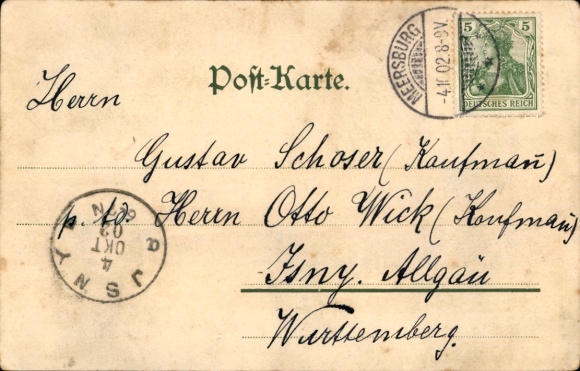 MEERSBURG
-4.X.02.8-9V.
5 5
DEUTSCHES REICH
Post-Karte.
Herrn
Gustav Schoser (Kaufmañ)
p. ad. Herrn Otto Wick (Kaufmañ)
Isny. Allgäu
Württemberg.
JSNY
4
OKT
02